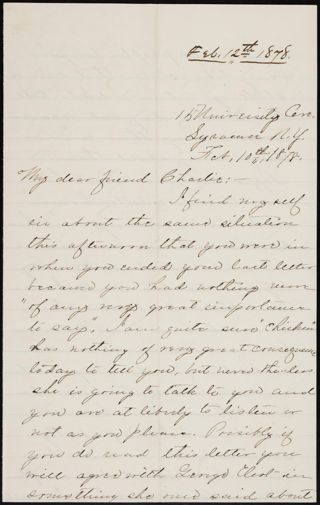 Feb. 12th 1878.
15 University Ave.
Syracuse N.Y.
Feb. 10th, 1878.
My dear friend Charlie:-
I find myself
in about the same situation
this afternoon that you were in
when you ended your last letter
because you had nothing more
"of any very great importance
to say". I am quite sure "Chicken"
has nothing of very great consequence
today to tell you, but never-the-less
she is going to talk to you and
you are at liberty to listen or
not as you please. Possibly if
you do read this letter you
will agree with George Eliot in
something she once said about